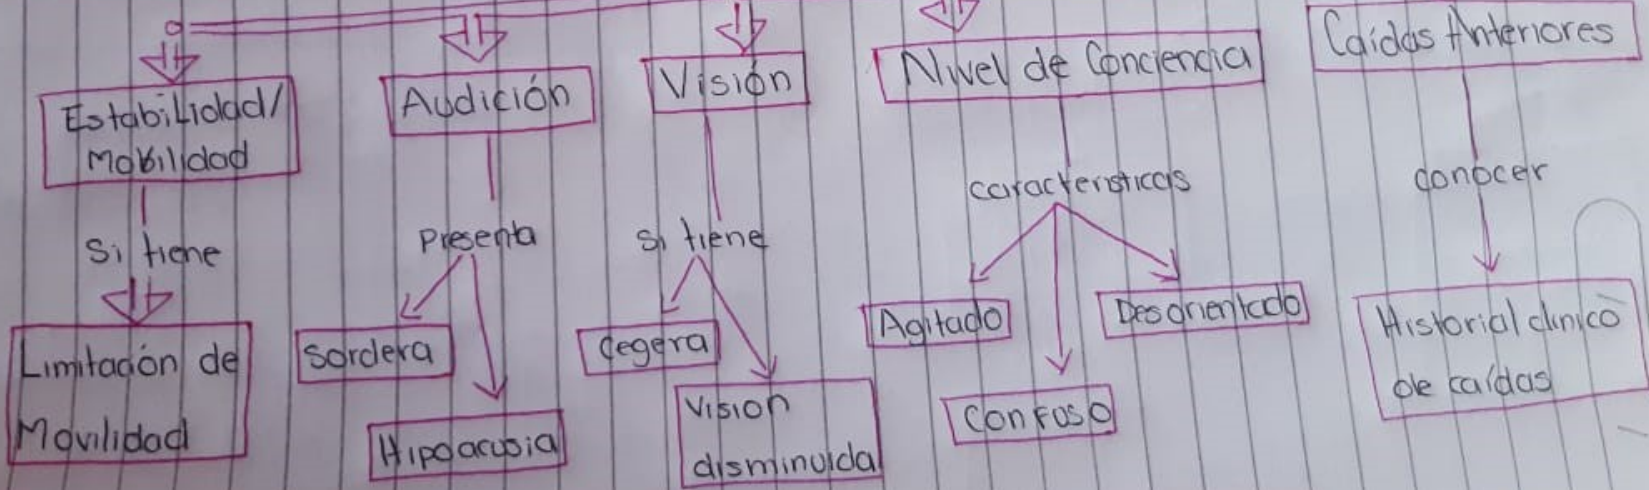 Estabilidad/
Mobilidad
Si tiene
Limitación de
Movilidad
Audición
Presenta
Sordera
Hipoacusia
Visión
si tiene
Cegera
Vision
disminuida
Nivel de Conciencia
caracteristicas
Agitado
Confuso
Desorientado
Caídas Anteriores
conocer
Historial clinico
de caídas